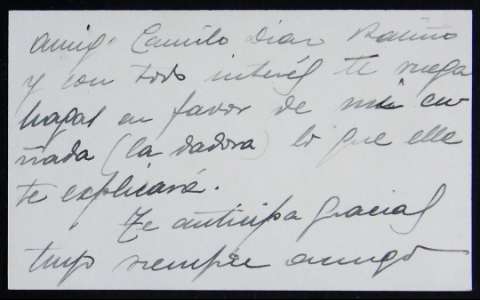 amigo Camilo Díaz Baliño
y con todo interés te ruega
hagas en favor de mi cu
ñada (la dadora) lo que ella
te explicará.
Te anticipa gracias
tuyo siempre amigo